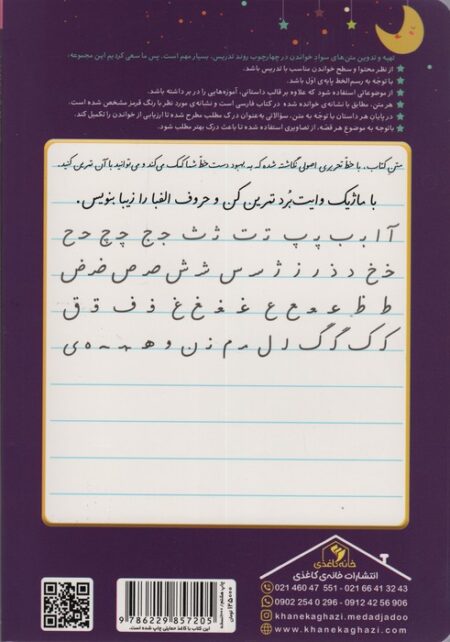 تهیه و تدوین متن‌های سواد خواندن در چهارچوب روند تدریس، بسیار مهم است. پس ما سعی کردیم این مجموعه:
از نظر محتوا و سطح خواندن مناسب با تدریس باشد.
با توجه به رسم‌الخط پایه‌ی اوّل باشد.
از موضوعاتی استفاده شود که علاوه بر قالب داستانی، آموزه‌هایی را در بر داشته باشد.
هر متن، مطابق با نشانه‌ی خوانده شده در کتاب فارسی است و نشانه‌ی مورد نظر با رنگ قرمز مشخص شده است.
در پایان هر داستان با توجه به متن، سؤالاتی به‌عنوان درک مطلب مطرح شده تا ارزیابی از خواندن را تکمیل کند.
باتوجه به موضوع هر قصّه، از تصاویری استفاده شده تا باعث درک بهتر مطلب شود.
متن کتاب، با خطّ تحریری اصولی نگاشته شده که به بهبود دست خطّ شما کمک می‌کند و می‌توانید با آن تمرین کنید.
با ماژیک وایت‌بُرد تمرین کن و حروف الفبا را زیبا بنویس.
آ ا بـ ب پـ پ تـ ت ثـ ث جـ ج چـ چ حـ ح
خـ خ د ذ ر ز ژ سـ س شـ ش صـ ص ضـ ض
ط ظ عـ ـعـ ـع ع غـ ـغـ ـغ غ فـ ف قـ ق
کـ ک گـ گ لـ ل مـ م نـ ن و هـ ـهـ ـه ه یـ ی
خانه کاغذی
انتشارات خانه‌ی کاغذی
021 460 47 551 - 021 66 41 32 43
0902 254 0 296 - 0912 42 56 906
khanekaghazi.medadjadoo
www.khanekaghazi.com
9 786229 857205
این کتاب با کاغذ حمایتی چاپ شده است.